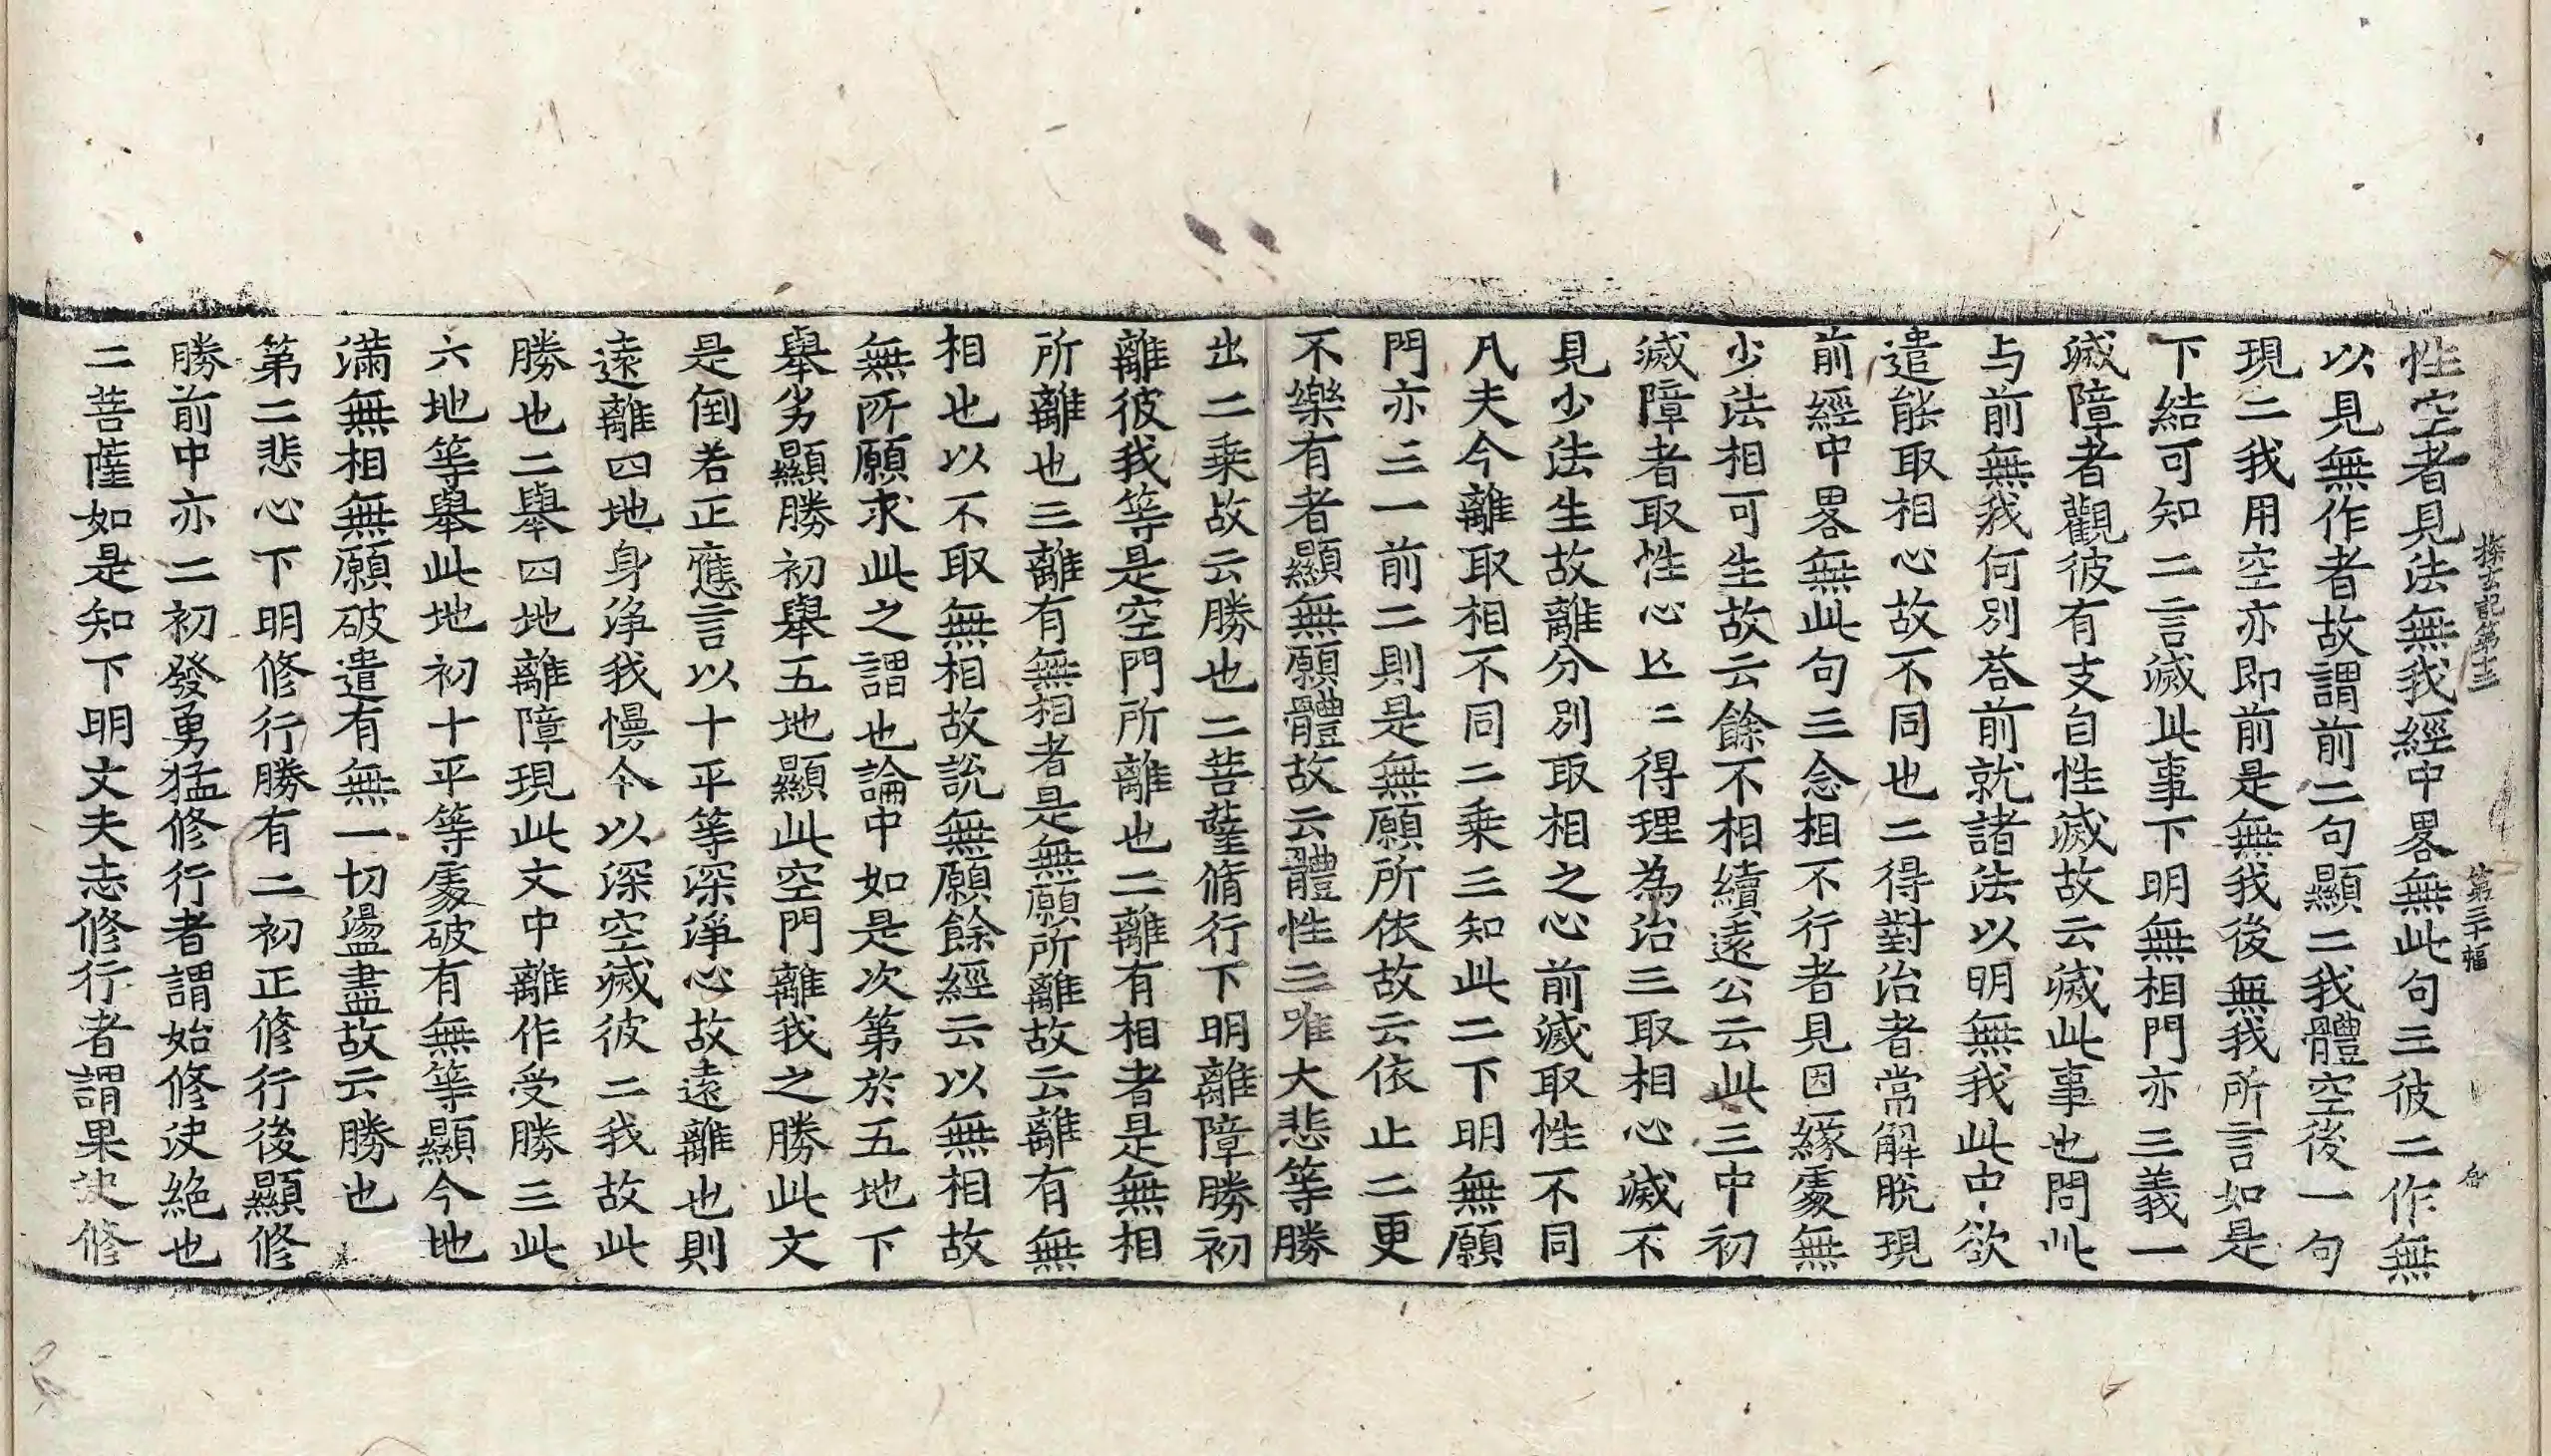 探玄記第十三 第二十幅
性空者見法無我經中畧無此句三彼二作無
以見無作者故謂前二句顯二我體空後一句
現二我用空亦即前是無我後無我所言如是
下結可知二言滅此事下明無相門亦三義一
滅障者觀彼有支自性滅故云滅此事也問此
与前無我何別荅前就諸法以明無我此中欲
遣能取相心故不同也二得對治者常解脫現
前經中畧無此句三念相不行者見因緣處無
少法相可生故云餘不相續遠公云此三中初
滅障者取性心亡二得理為治三取相心滅不
見少法生故離分別取相之心前滅取性不同
凡夫今離取相不同二乗三知此二下明無願
門亦三一前二則是無願所依故云依止二更
不樂有者顯無願體故云體性三唯大悲等勝
出二乗故云勝也二菩薩脩行下明離障勝初
離彼我等是空門所離也二離有相者是無相
所離也三離有無相者是無願所離故云離有無
相也以不取無相故說無願餘經云以無相故
無所願求此之謂也論中如是次第於五地下
舉劣顯勝初舉五地顯此空門離我之勝此文
是倒若正應言以十平等深淨心故遠離也則
遠離四地身淨我慢今以深空滅彼二我故此
勝也二舉四地離障現此文中離作受勝三此
六地等舉此地初十平等處破有無等顯今地
滿無相無願破遣有無一切盪盡故云勝也
第二悲心下明修行勝有二初正修行後顯修
勝前中亦二初發勇猛修行者謂始修決絶也
二菩薩如是知下明丈夫志修行者謂果決修